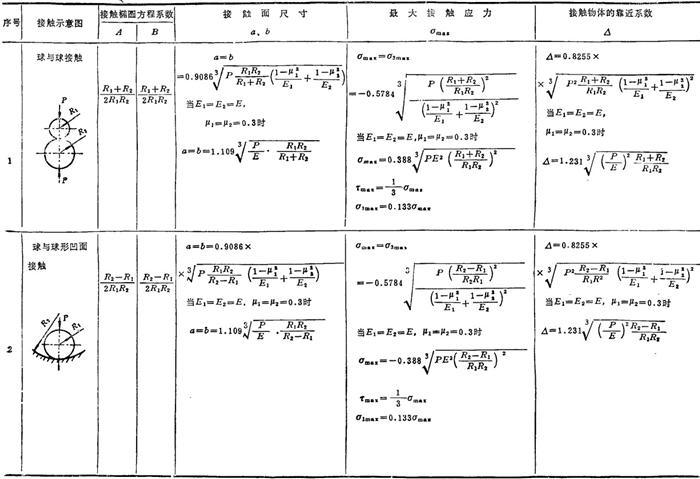 序号 接触示意图 接触椭圆方程系数 接触面尺寸 最大接触应力 接触物体的靠近系数
A B a、b σmax Δ
1
球与球接触
P R₁ R₂ P
(R₁+R₂)/(2R₁R₂) (R₁+R₂)/(2R₁R₂)
a=b
=0.9086∛(P (R₁R₂)/(R₁+R₂) ((1-μ₁²)/E₁+(1-μ₂²)/E₂))
当E₁=E₂=E,
μ₁=μ₂=0.3时
a=b=1.109∛(P/E · (R₁R₂)/(R₁+R₂))
σmax=σ₃max
=-0.5784∛(P((R₁+R₂)/(R₁R₂))²/((1-μ₁²)/E₁+(1-μ₂²)/E₂)²)
当E₁=E₂=E,μ₁=μ₂=0.3时
σmax=0.388∛(PE²((R₁+R₂)/(R₁R₂))²)
τmax=1/3 σmax
σ₁max=0.133σmax
Δ=0.8255×
×∛(P² (R₁+R₂)/(R₁R₂) ((1-μ₁²)/E₁+(1-μ₂²)/E₂)²)
当E₁=E₂=E,
μ₁=μ₂=0.3时
Δ=1.231∛((P/E)² (R₁+R₂)/(R₁R₂))
2
球与球形凹面
接触
R₂ P R₁
(R₂-R₁)/(2R₁R₂) (R₂-R₁)/(2R₁R₂)
a=b=0.9086×
×∛(P (R₁R₂)/(R₂-R₁) ((1-μ₁²)/E₁+(1-μ₂²)/E₂))
当E₁=E₂=E, μ₁=μ₂=0.3时
a=b=1.109∛(P/E · (R₁R₂)/(R₂-R₁))
σmax=σ₃max
=-0.5784∛(P((R₂-R₁)/(R₂R₁))²/((1-μ₁²)/E₁+(1-μ₂²)/E₂)²)
当E₁=E₂=E, μ₁=μ₂=0.3时
σmax=-0.388∛(PE²((R₂-R₁)/(R₁R₂))²)
τmax=1/3 σmax
σ₁max=0.133σmax
Δ=0.8255×
×∛(P² (R₂-R₁)/(R₁R²) ((1-μ₁²)/E₁+(1-μ₂²)/E₂)²)
当E₁=E₂=E, μ₁=μ₂=0.3时
Δ=1.231∛((P/E)² (R₂-R₁)/(R₁R₂))